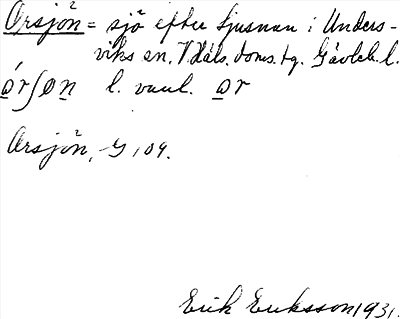 Orsjön = sjö efter Ljusnan i Unders-
viks sn. V. Häls. doms. tg. Gävleb. l.
ó̱rʃøṉ l. vanl. o̱r
Orsjön, G 109.
Erik Eriksson 1931.